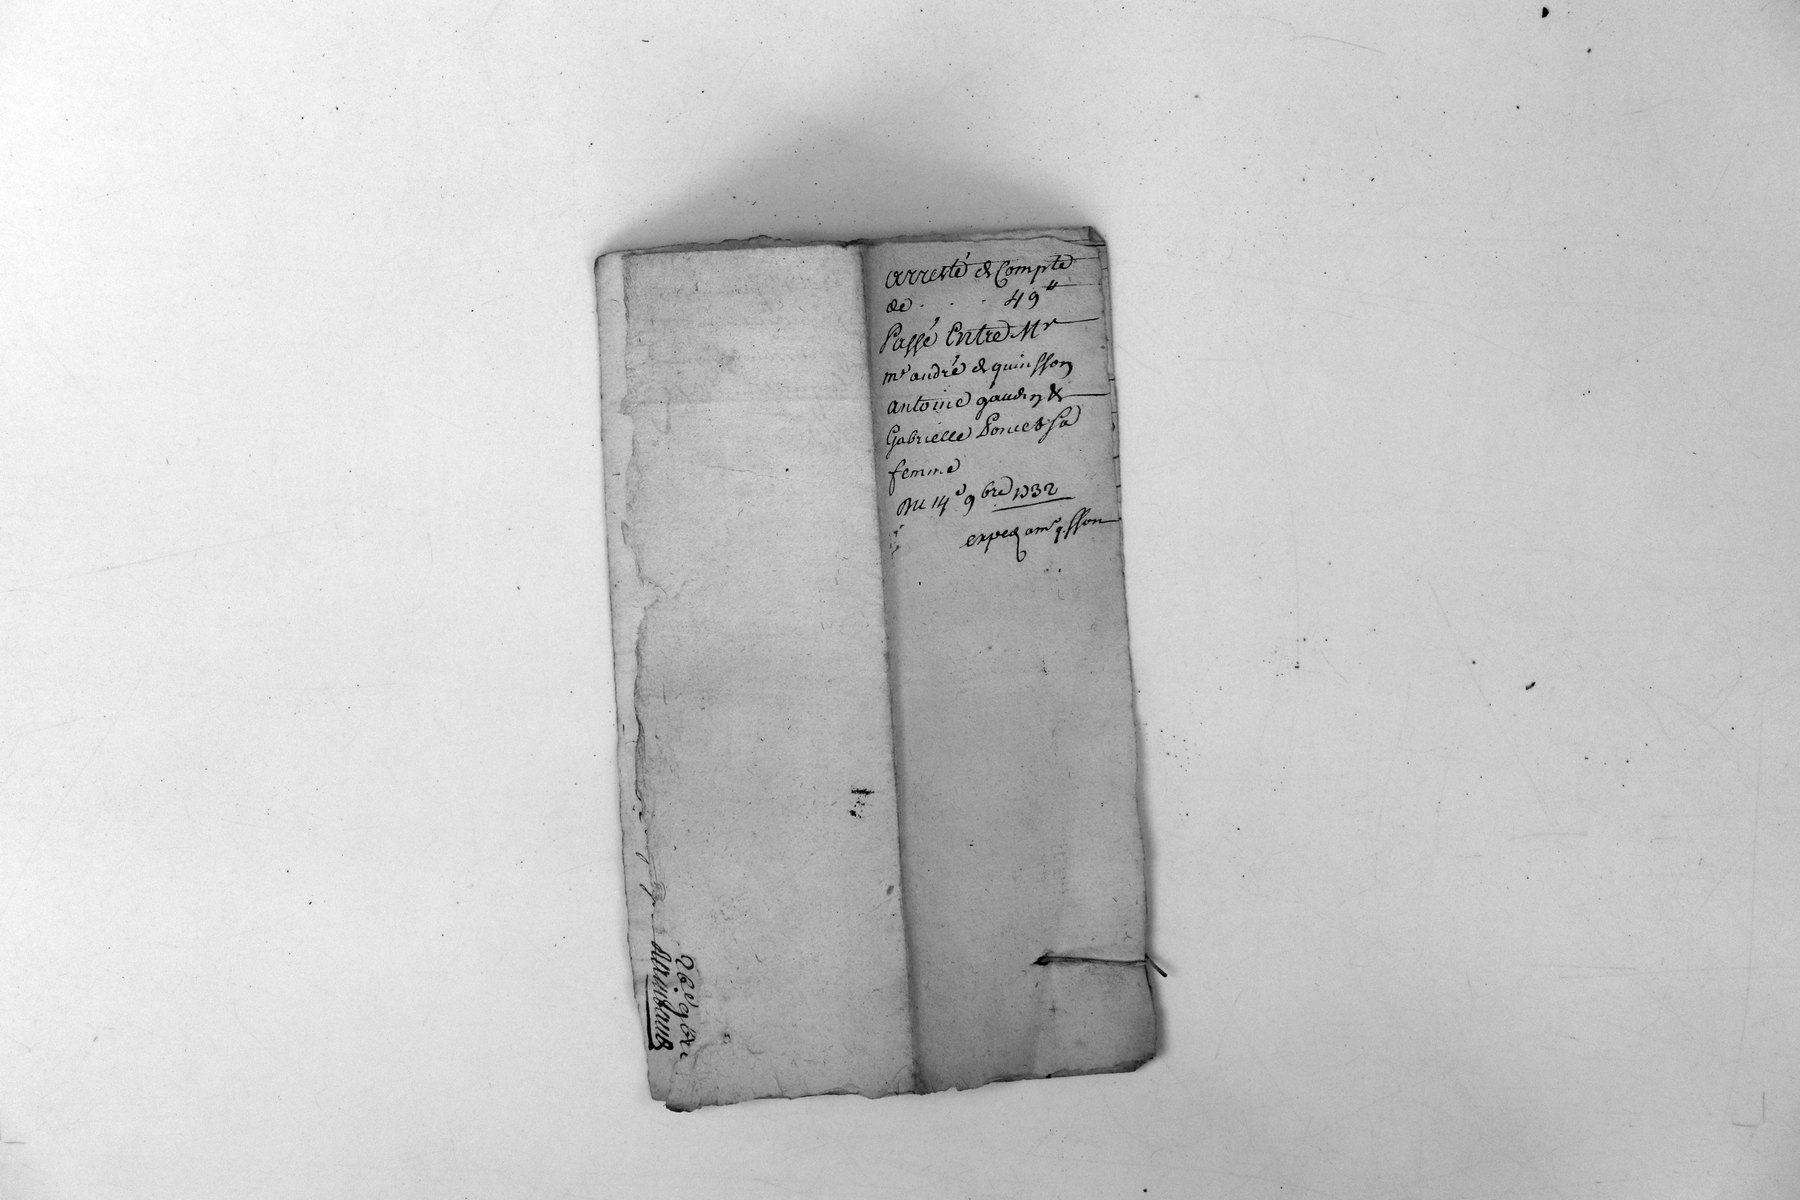 arresté de Compte
de . . . 49 ʰ
Passé Entre Mr
mᵉ andré de quinsson
antoine gaudin &
Gabrielle Poncet Sa
femme
Du 14ᵉ 9bre 1732
exped a mʳ qsson